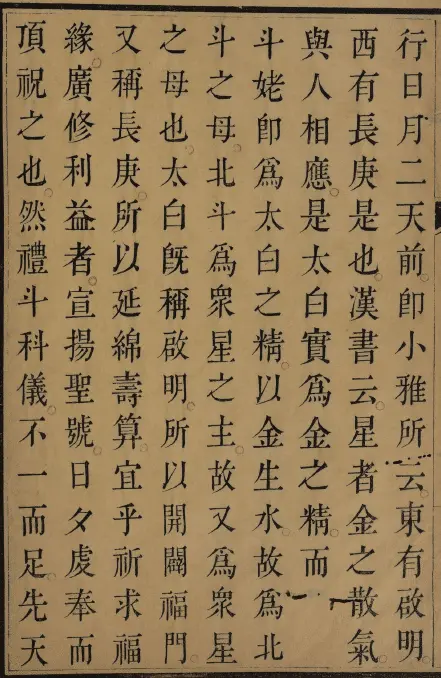 行日月二天前卽小雅所云東有啟明
西有長庚是也漢書云星者金之散氣
與人相應是太白實爲金之精而
斗姥卽爲太白之精以金生水故爲北
斗之母北斗爲眾星之主故又爲眾星
之母也太白旣稱啟明所以開闢福門
又稱長庚所以延綿壽算宜乎祈求福
緣廣修利益者宣揚聖號日夕虔奉而
頂祝之也然禮斗科儀不一而足先天